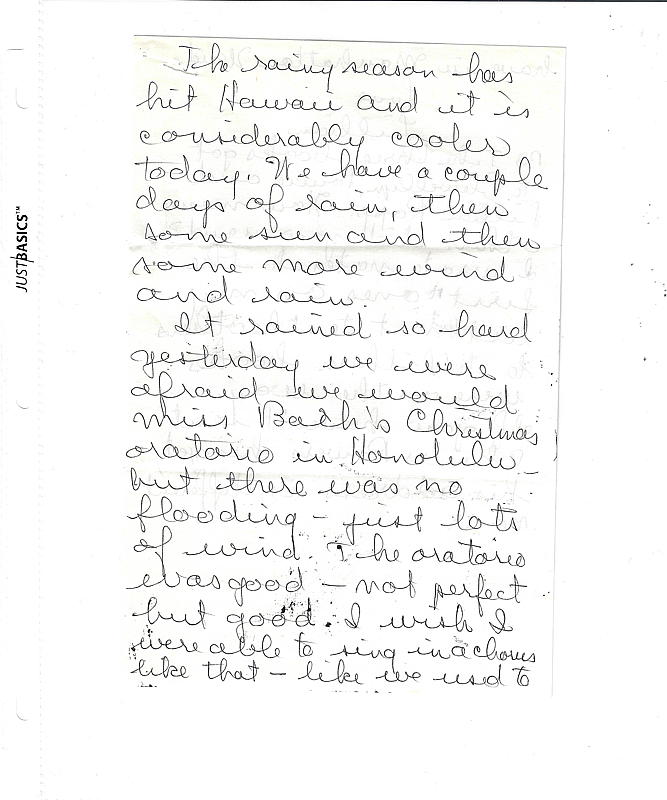 The rainy season has
hit Hawaii and it is
considerably cooler
today. We have a couple
days of rain, then
some sun and then
some more wind
and rain.
It rained so hard
yesterday we were
afraid we would
miss Bach's Christmas
oratorio in Honolulu -
but there was no
flooding - just lots
of wind. The oratorio
was good - not perfect
but good. I wish I
were able to sing in a chorus
like that - like we used to
JUSTBASICS™